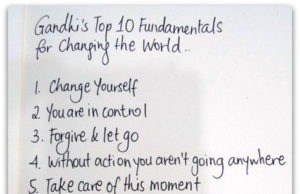 Gandhi's Top 10 Fundamentals
for Changing the World..
1. Change Yourself
2. You are in control
3. Forgive & let go
4. Without action you aren't going anywhere
5. Take care of this moment